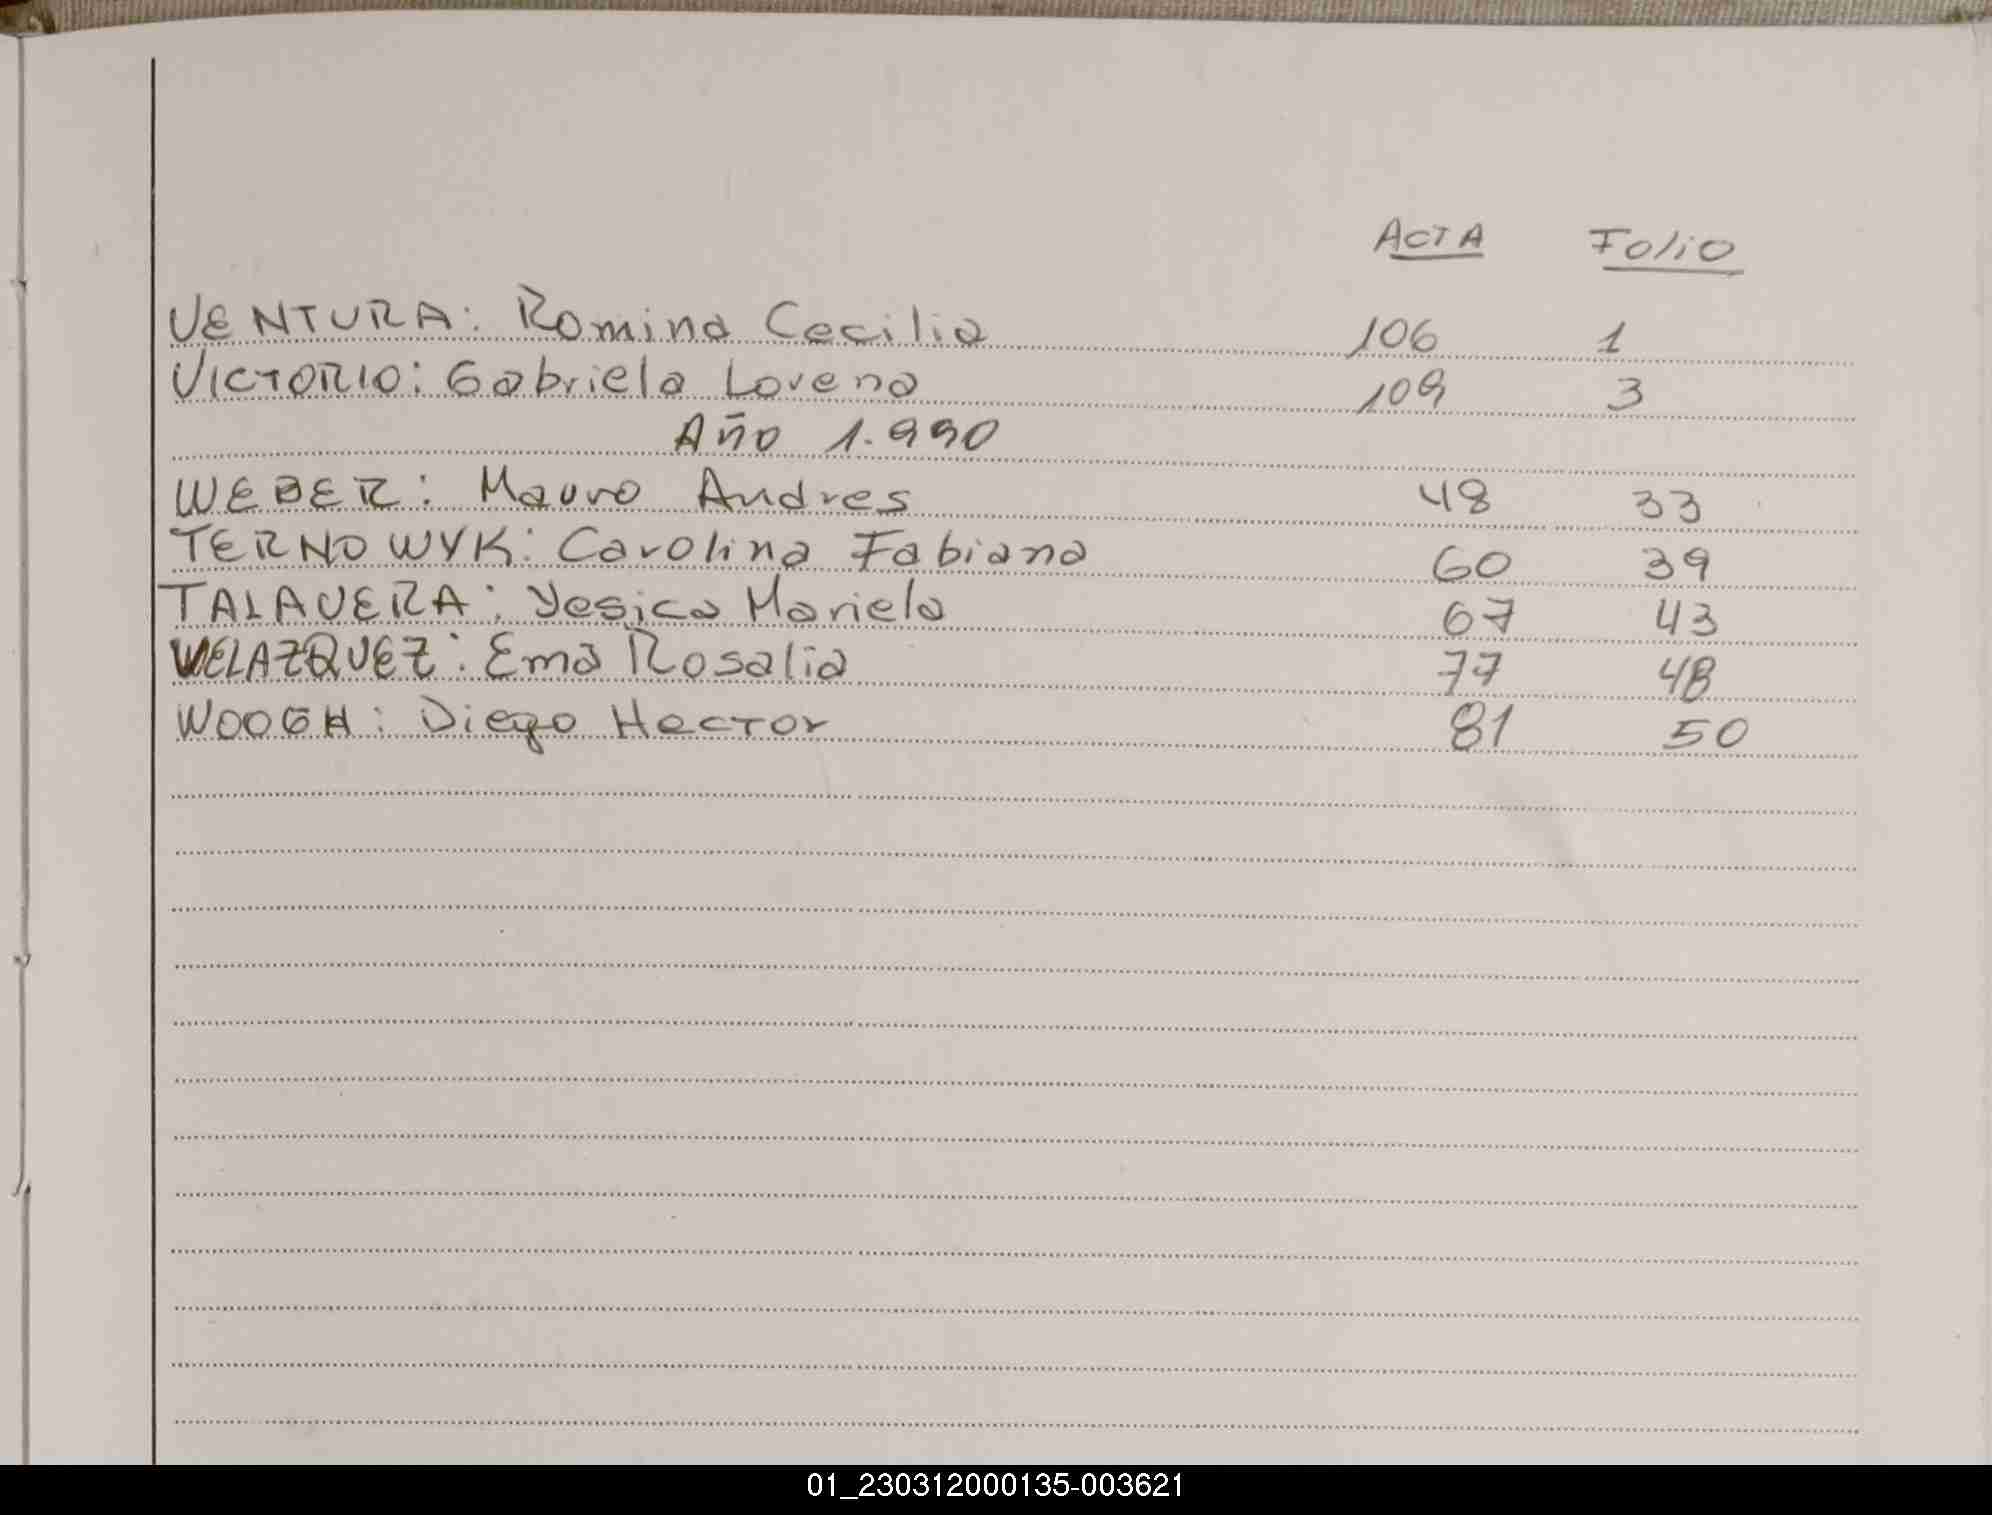 ACTA Folio
VENTURA: Romina Cecilia 106 1
VICTORIO: Gabriela Lorena 109 3
Año 1.990
WEBER: Mauro Andres 48 33
TERNOWYK: Carolina Fabiana 60 39
TALAVERA: Yesica Mariela 67 43
WELAZQUEZ: Ema Rosalia 77 48
WOOGH: Diego Hector 81 50
01_230312000135-003621